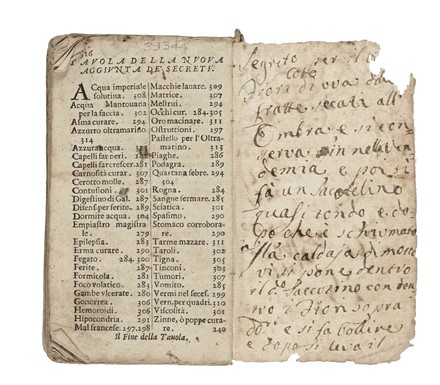 326
39344
TAVOLA DELLA NVOVA
AGGIVNTA DE SECRETI.
ACqua imperiale
solutina. 308
Acqua Mantouana
per la faccia. 302
Asma curare. 294
Azzurro oltramarino
314
Azzura acqua.
Capelli far neri. 282
Capelli far crescer. 281
Carnosità curar. 307
Cerotto molle. 287
Contusioni. 301
Digestiuo di Gal. 287
Difens. per ferite. 289
Dormire acqua. 304
Empiastro magistra
le. 279
Epilepsia. 281
Firma curare. 290
Fegato. 284. 300
Ferite. 287
Formicola. 281
Foco volatico. 283
Gambe vlcerate. 286
Gonorrea. 306
Hemoroidi. 306
Hipocondria. 291
Mal francese. 297. 298
Macchie lauare. 309
Matrice. 307
Mestrui. 294
Occhi cur. 284. 305
Oro macinare. 311
Ostruttioni. 297
Pastello per l'Oltra-
marino. 313
Piaghe. 286
Podagra. 289
Quartana febre. 294
304
Rogna. 284
Sangue fermare. 281
Sciatica. 301
Spasimo. 290
Stomaco corrobora-
re. 290
Tarme mazare. 311
Taroli. 302
Tigna. 305
Tinconi. 303
Tumori. 307
Vomito. 285
Vermi nel seces. 299
Vern. per quadri. 310
Viscosità. 301
Zinne, ò poppe cura-
re. 240
Il Fine della Tauola.
Segreto per il
Fiori di uva
fratte secata all
Ombra e si con
serva
demia, e poi si
fà un Saccolino
quasi tondo e do
po che è schiumato
la caldaja di mosto
vi si pone dentro
il d.o Saccorino con den
tro i Fiori sopra
e si fà bollire
e depo si leva il